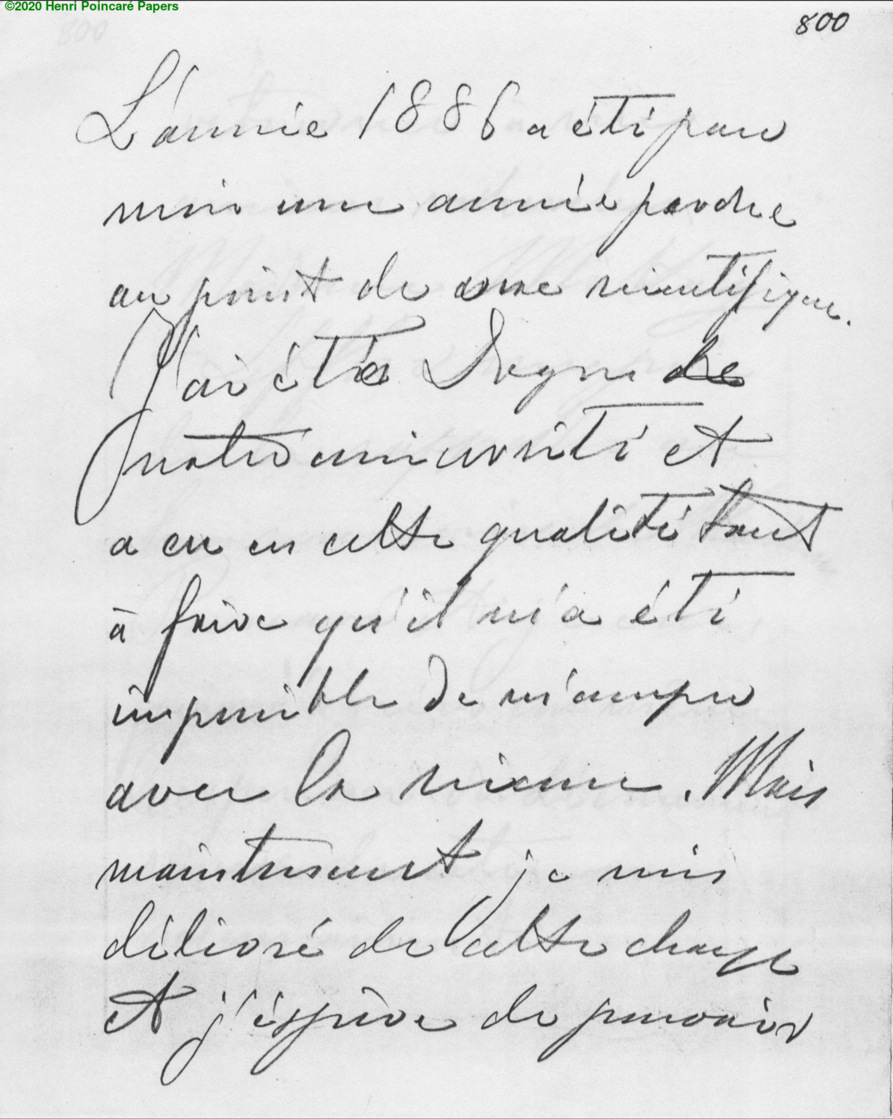 ©2020 Henri Poincaré Papers
800
L'année 1886 a été pour
moi une année perdue
au point de vue scientifique.
J'ai été de
notre université et
a eu en cette qualité tant
à faire qu'il m'a été
impossible de m'occuper
avec la science. Mais
maintenant je suis
délivré de cette charge
et j'espère de pouvoir